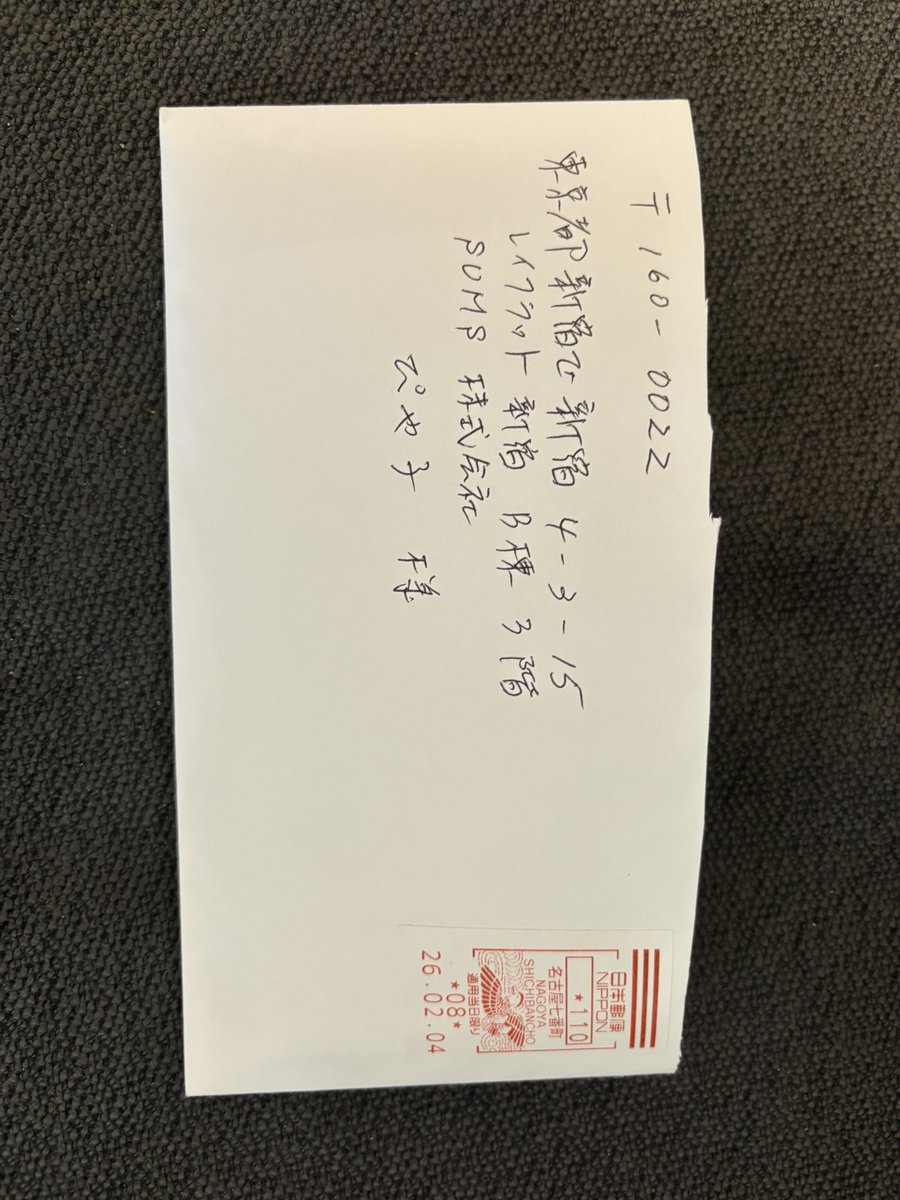 〒160-0022
東京都新宿区新宿 4-3-15
レイフラット新宿 B棟 3階
SOMS 株式会社
ぴや子 様
日本郵便
NIPPON
★110
名古屋七番町
NAGOYA
SHICHIBANCHO
適用当日限り
★08★
26.02.04